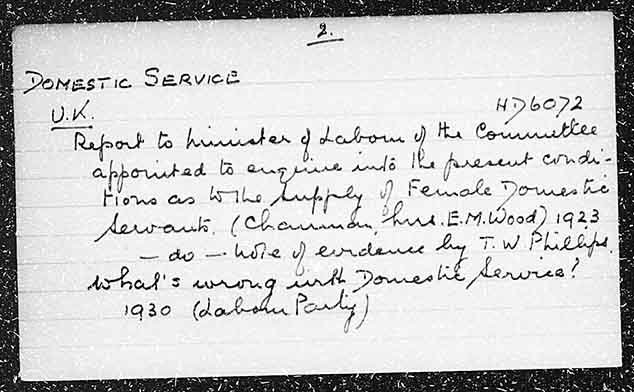 2.
DOMESTIC SERVICE
U.K. HD6072
Report to Minister of Labour of the Committee
appointed to enquire into the present condi-
tions as to the supply of Female Domestic
Servants. (Chairman, Mrs. E.M. Wood) 1923
— do — Note of evidence by T. W. Phillips.
What's wrong with Domestic Service?
1930 (Labour Party)